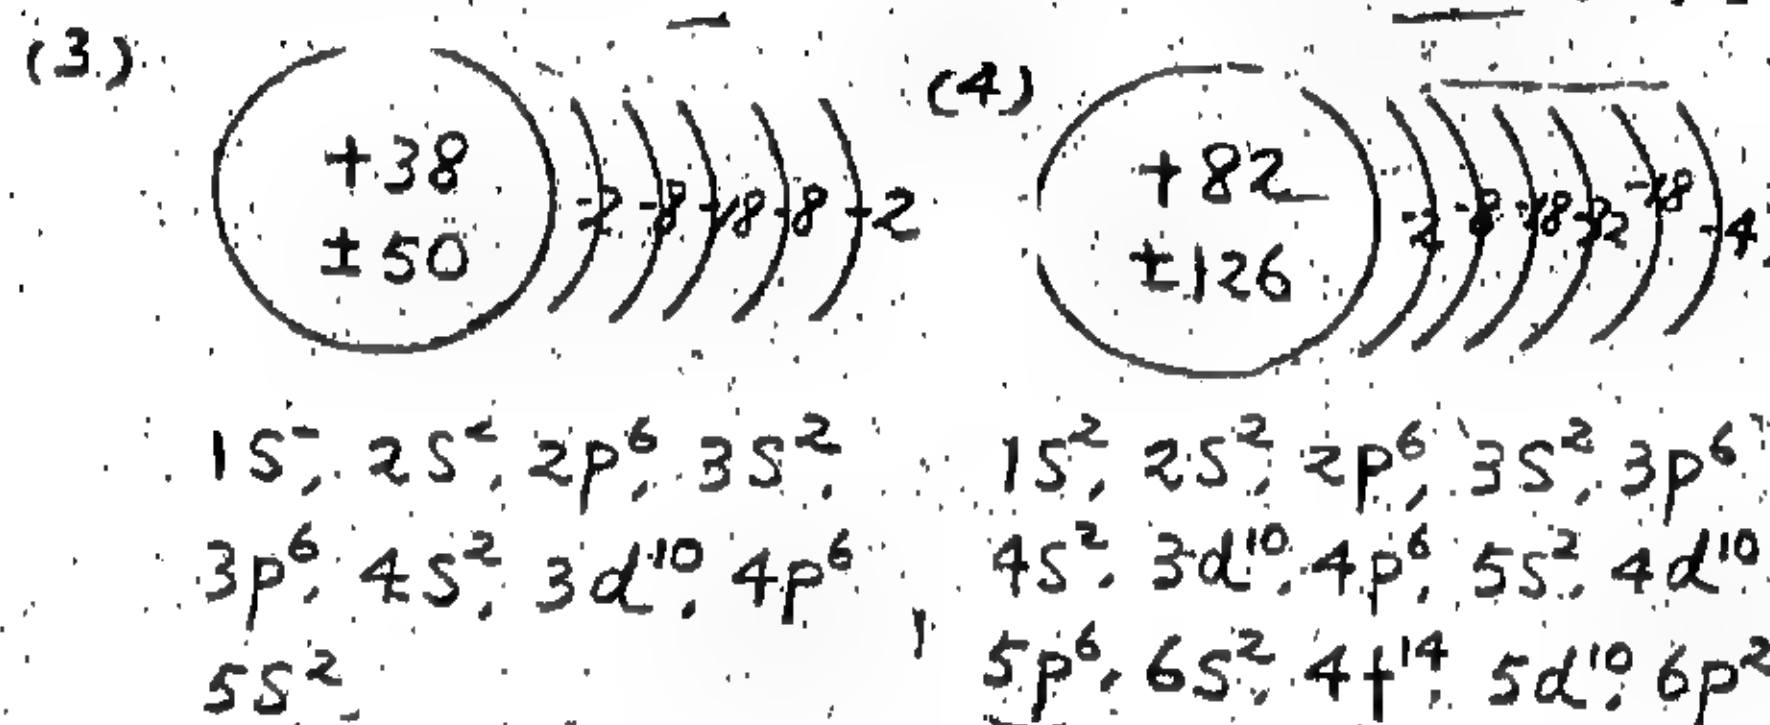 (3)
+38
±50
-2 -8 -18 -8 -2
1s², 2s², 2p⁶, 3s²,
3p⁶, 4s², 3d¹⁰, 4p⁶
5s²
(4)
+82
±126
-2 -8 -18 -32 -18 -4
1s², 2s², 2p⁶, 3s², 3p⁶
4s², 3d¹⁰, 4p⁶, 5s², 4d¹⁰
5p⁶, 6s², 4f¹⁴, 5d¹⁰, 6p²